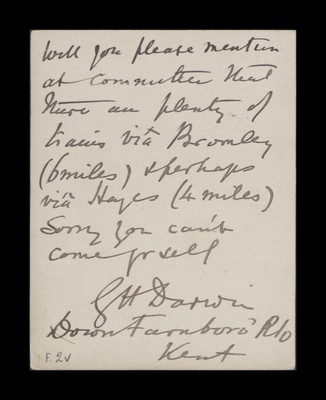 Will you please mention
at committee that
there are plenty of
trains via Bromley
(6 miles) & perhaps
via Hayes (4 miles)
Sorry you can't
come yrself
G H Darwin
Down Farnboro' R.S.O
Kent
F. 2v